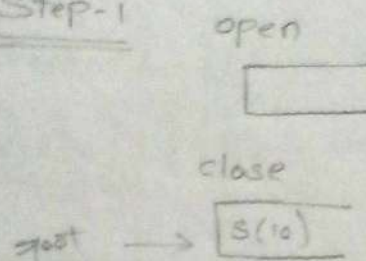 Step-1
open
close
root → S(10)